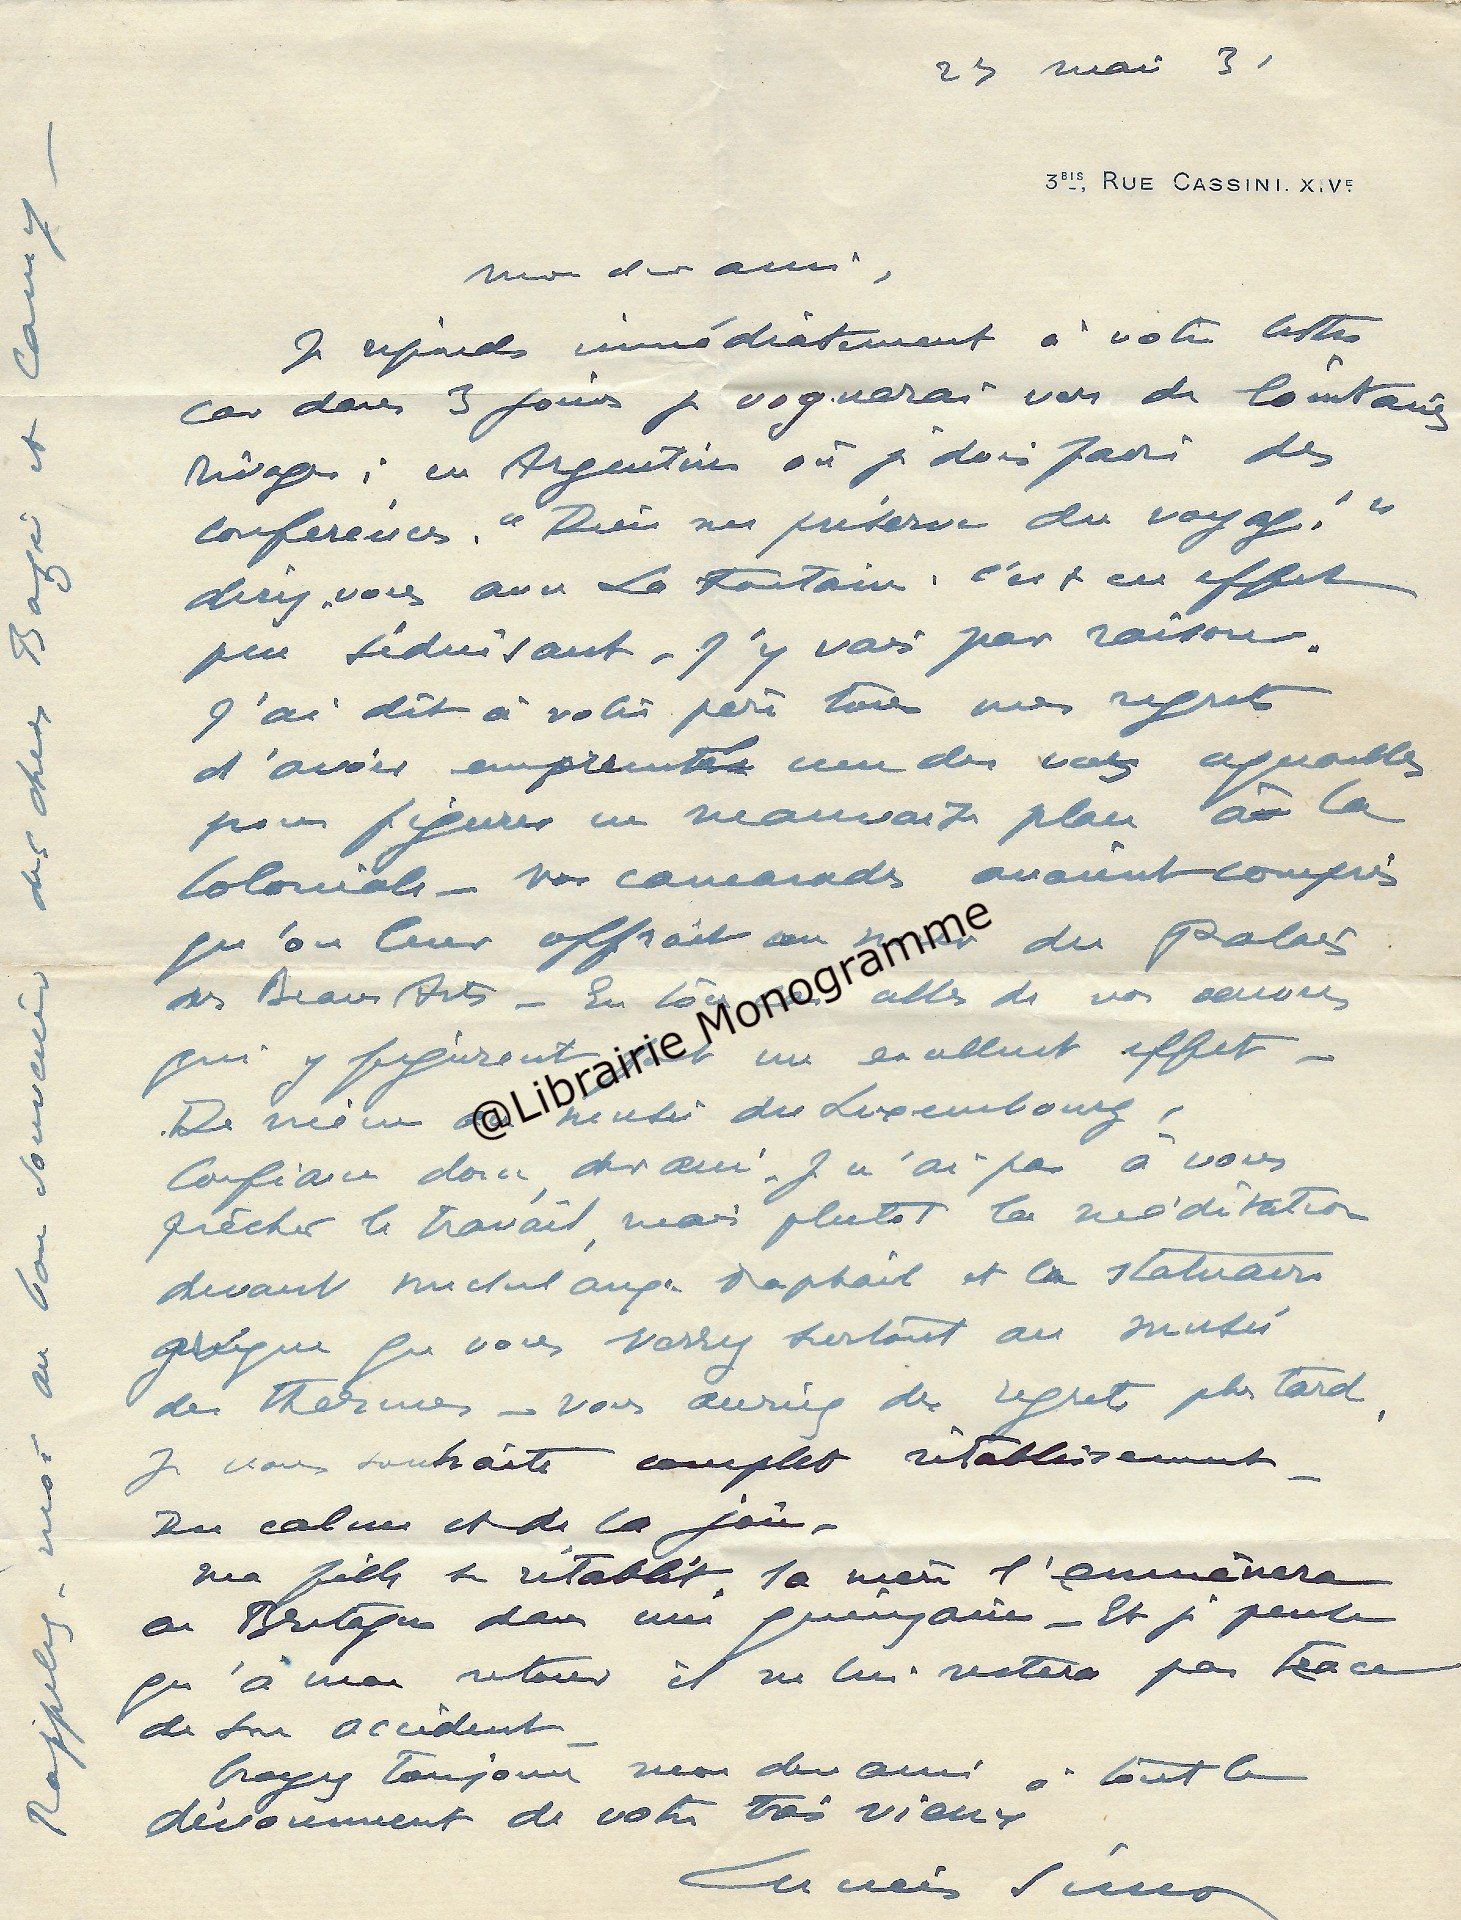 mai 31
3BIS, RUE CASSINI. XIVE
Mon cher ami,
Je réponds immédiatement à votre lettre
car dans 3 jours je voguerai vers de lointains
rivages ; en Argentine où je dois faire des
conférences. "Dieu me préserve du voyage !"
direz-vous avec La Fontaine. C'est en effet
peu séduisant - J'y vais par raison.
J'ai dit à votre père tous mes regrets
d'avoir emprunté un de vos
pour figurer en mauvaise place à la
Coloniale - Vos camarades avaient compris
qu'on leur offrait un mur du Palais
des Beaux Arts - En tous cas celles de vos œuvres
qui y figurent font un excellent effet -
De même au musée du Luxembourg,
Confiance donc, cher ami. Je n'ai pas à vous
prêcher le travail, mais plutôt la méditation
devant Michel ange Raphaël et la statuaire
grecque que vous verrez surtout au musée
des Thermes - vous auriez des regrets plus tard,
Je vous souhaite complet rétablissement -
Du calme et de la joie -
Ma fille se rétablit, sa mère l'emmènera
en Bretagne dans une quinzaine - Et je pense
qu'à mon retour il ne lui restera pas trace
de son accident -
Croyez toujours mon cher ami à tout le
dévouement de votre très vieux
Lucien Simon
Rappelez-moi au bon souvenir des chers Bazin et Camy -
@Librairie Monogramme